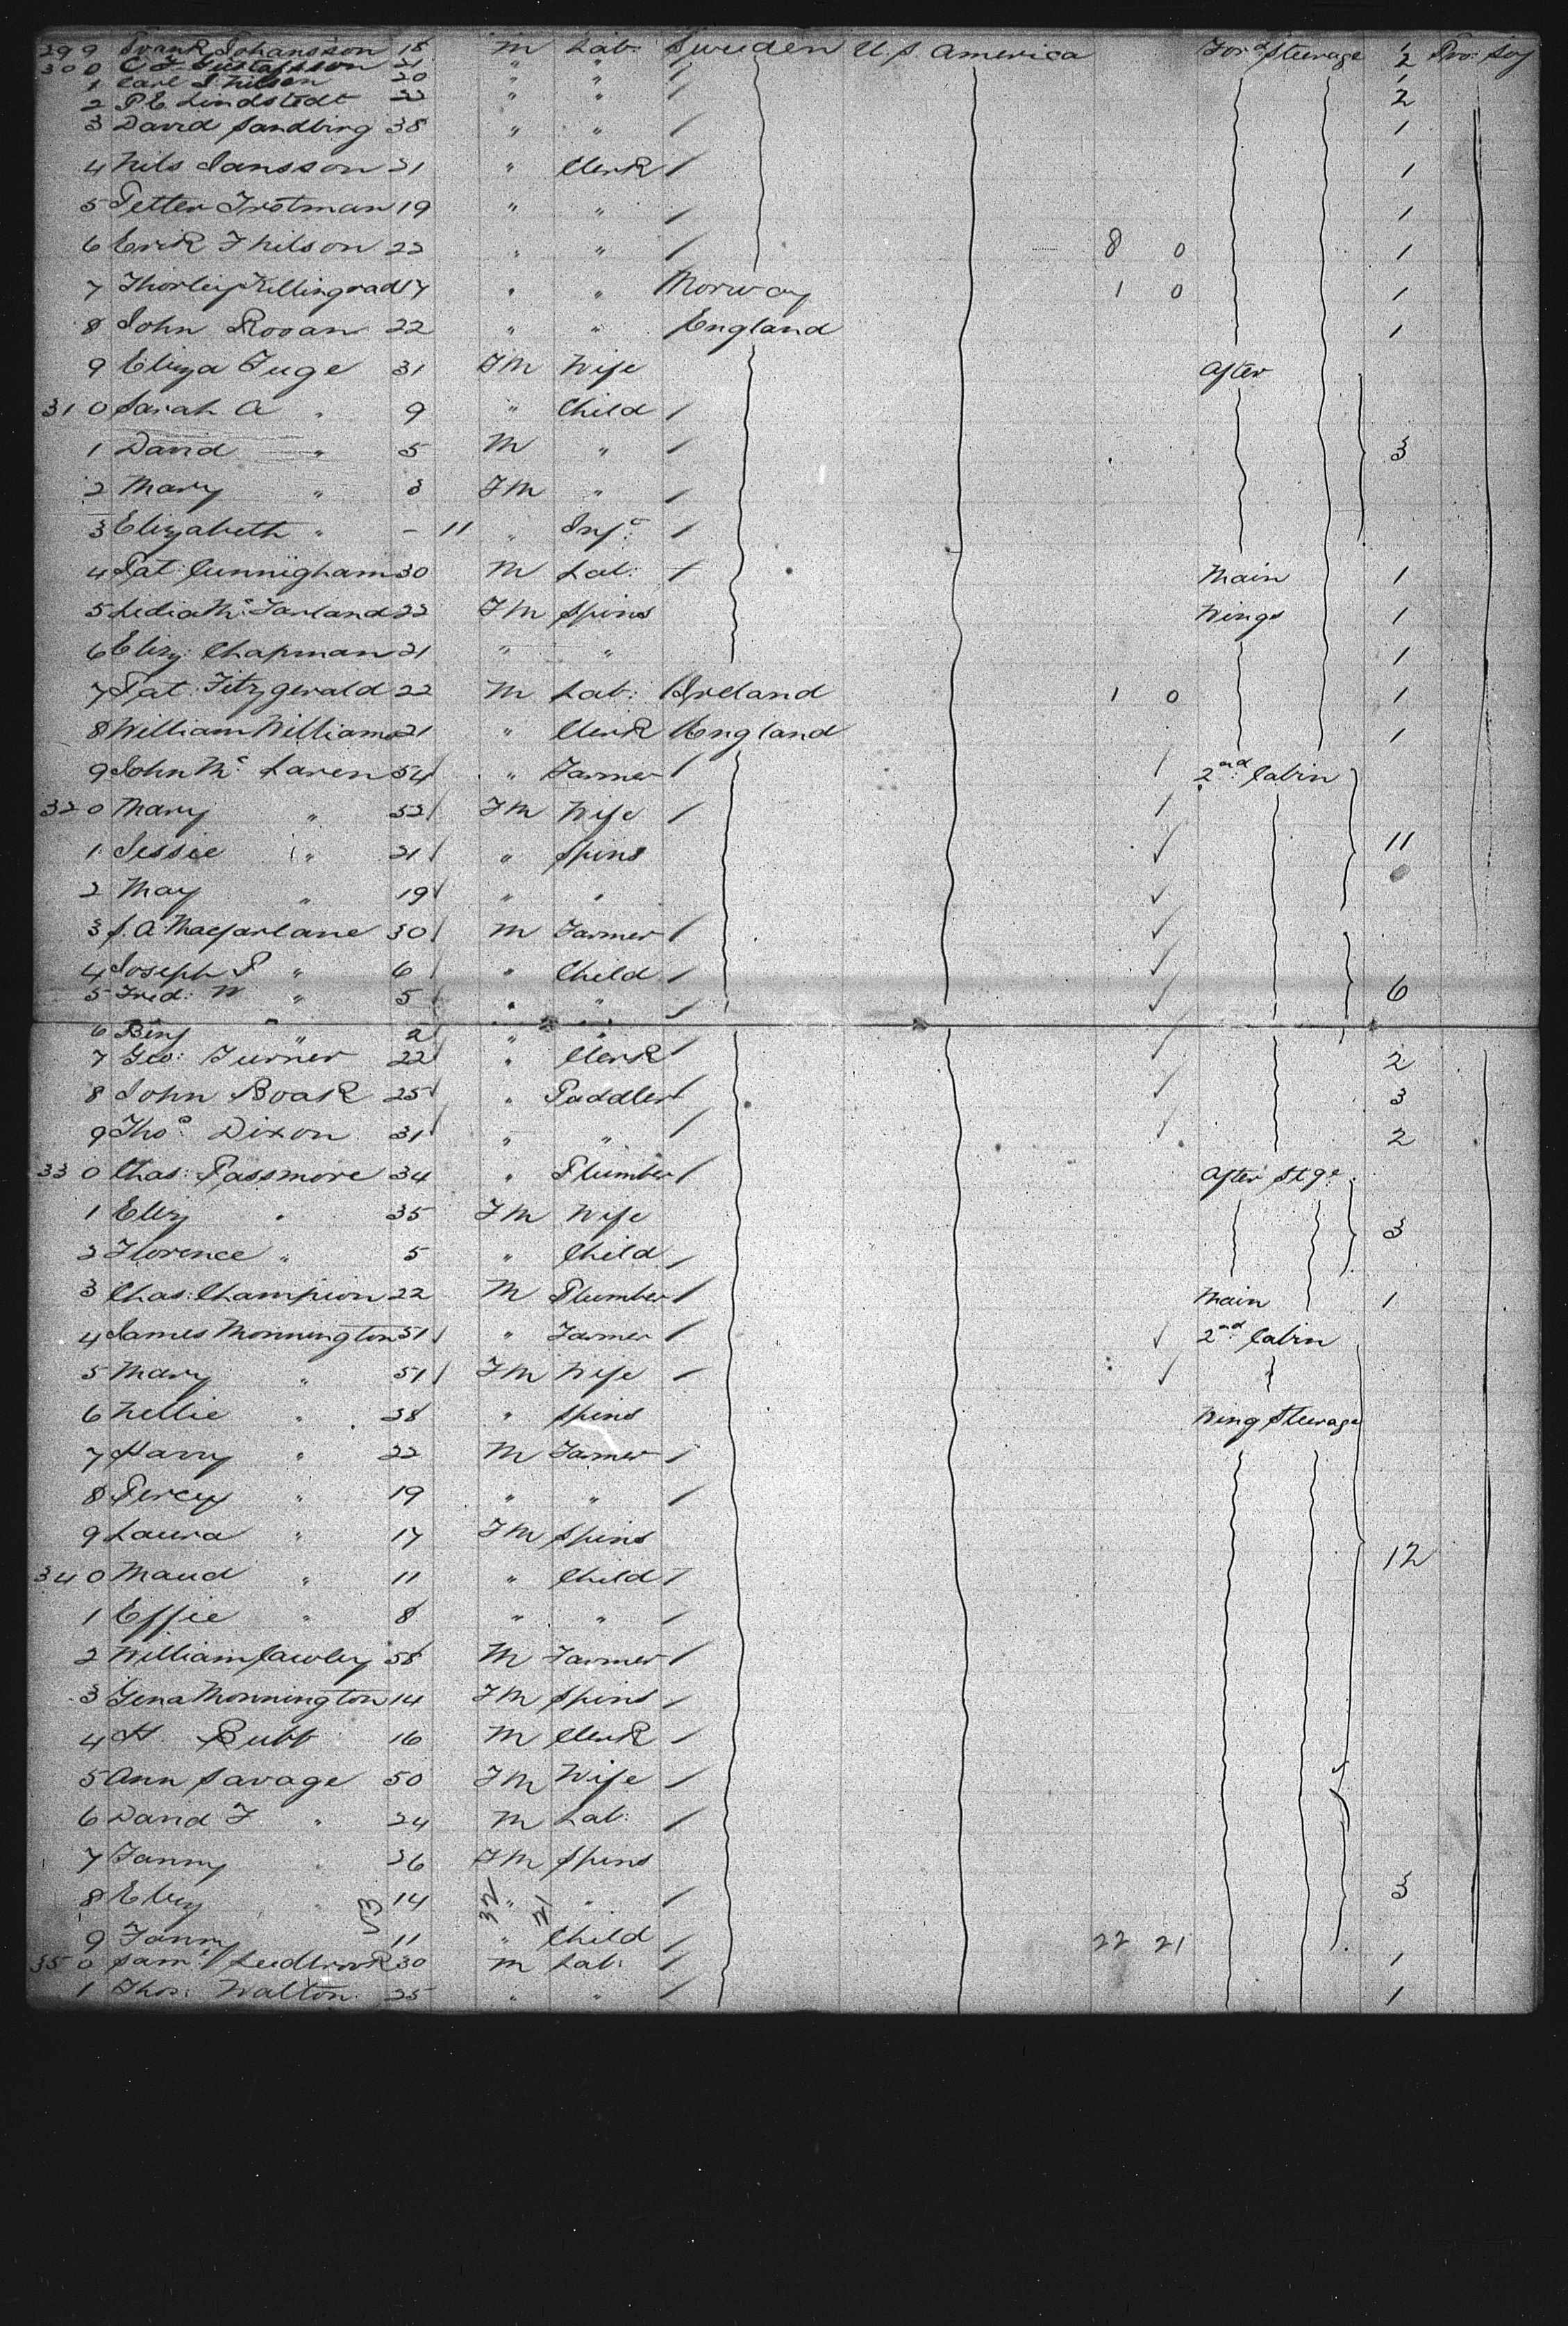 299 Frank Johansson 18 M Lab: Sweden U.S. America For'd Steerage 1 Pro: Soj
300 C F Gustafsson 21 " " 2
1 Carl J. Nilson 20 " " 1
2 P E Lindstedt 22 " " 2
3 David Sandbirg 38 " " 1
4 Nils Jansson 21 " Clerk 1
5 Petter Trotman 19 " " 1
6 Erik J Nilson 22 " " 8 0 1
7 Thorleif Killingrad 17 " " Norway 1 0 1
8 John Rooan 22 " " England 1
9 Eliza Fuge 31 FM Wife After
310 Sarah A " 9 " Child
1 David " 5 M " 3
2 Mary " 3 FM "
3 Elizabeth " - 11 " Inft
4 Pat Cunnigham 30 M Lab: Main 1
5 Lidia Mc Farland 22 FM Spins Wings 1
6 Eliz: Chapman 21 " " 1
7 Pat: Fitzgerald 22 M Lab: Ireland 1 0 1
8 William Williams 21 " Clerk England 1
9 John Mc Laren 54 " Farmer 2nd Cabin
320 Mary " 52 FM Wife
1 Jessie " 21 " Spins 11
2 May " 19 " "
3 J. A. Macfarlane 30 M Farmer
4 Joseph P " 6 " Child
5 Fred: W " 5 " " 6
6 Benj " 2 " "
7 Geo: Turner 22 " Clerk 2
8 John Boak 25 " Paddler 3
9 Thos Dixon 31 " " 2
330 Chas: Passmore 34 " Plumber After Stge
1 Eliz " 35 FM Wife 3
2 Florence " 5 " Child
3 Chas: Champion 22 M Plumber Main 1
4 James Monnington 51 " Farmer 2nd Cabin
5 Mary " 51 FM Wife
6 Nellie " 28 " Spins Wing Steerage
7 Harry " 22 M Farmer
8 Percy " 19 " "
9 Laura " 17 FM Spins 12
340 Maud " 11 " Child
1 Effie " 8 " "
2 William Cawley 58 M Farmer
3 Gena Monnington 14 FM Spins
4 H. Bubb 16 M Clerk
5 Ann Savage 50 FM Wife
6 David F " 24 M Lab:
7 Fanny " 26 FM Spins
8 Eliz " 53 14 32 " 21 " 3
9 Fanny 11 " Child 22 21
350 Sam'l Ludbrook 30 M Lab: 1
1 Thos: Walton 25 " " 1